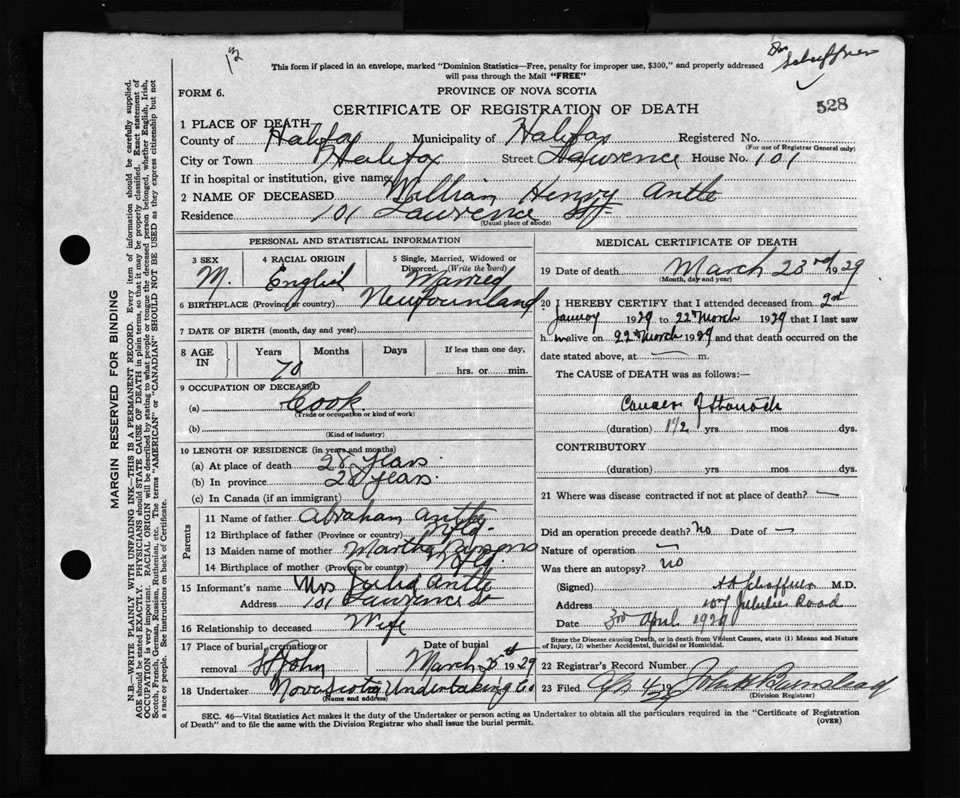 13
Dr Schaffner
This form if placed in an envelope, marked "Dominion Statistics—Free, penalty for improper use, $300," and properly addressed
will pass through the Mail "FREE"
FORM 6.
PROVINCE OF NOVA SCOTIA
528
CERTIFICATE OF REGISTRATION OF DEATH
1 PLACE OF DEATH
County of Halifax Municipality of Halifax Registered No.
(For use of Registrar General only)
City or Town Halifax Street Lawrence House No. 101
If in hospital or institution, give name
2 NAME OF DECEASED William Henry Antle
Residence 101 Lawrence St
(Usual place of abode)
PERSONAL AND STATISTICAL INFORMATION
3 SEX 4 RACIAL ORIGIN 5 Single, Married, Widowed or
Divorced. (Write the word)
M. English Married
6 BIRTHPLACE (Province or country) Newfounland
7 DATE OF BIRTH (month, day and year)
8 AGE IN Years Months Days If less than one day,
70 hrs. or min.
9 OCCUPATION OF DECEASED
(a) Cook
(Trade or occupation or kind of work)
(b)
(Kind of industry)
10 LENGTH OF RESIDENCE (in years and months)
(a) At place of death 28 years
(b) In province 28 years.
(c) In Canada (if an immigrant)
Parents
11 Name of father Abraham Antle
12 Birthplace of father (Province or country) Nfld.
13 Maiden name of mother Martha Parsons
14 Birthplace of mother (Province or country) Nfld.
15 Informant's name Mrs Julia Antle
Address 101 Lawrence St
16 Relationship to deceased Wife
17 Place of burial, cremation or Date of burial
removal St John March 25th 1929
18 Undertaker Nova Scotia Undertaking Co
(Name and address)
MEDICAL CERTIFICATE OF DEATH
19 Date of death March 23rd 1929
(Month, day and year)
20 I HEREBY CERTIFY that I attended deceased from 2nd
January 1929 to 22 March 1929 that I last saw
h im alive on 22 March 1929 and that death occurred on the
date stated above, at — m.
The CAUSE of DEATH was as follows:—
Cancer of Stomach
(duration) 1 1/2 yrs mos dys.
CONTRIBUTORY
(duration) yrs mos dys.
21 Where was disease contracted if not at place of death? —
Did an operation precede death? no Date of —
Nature of operation —
Was there an autopsy? no
(Signed) Schaffner M.D.
Address 107 Jubilee Road
Date 3rd April 1929
State the Disease causing Death, or in death from Violent Causes, state (1) Means and Nature
of Injury, (2) whether Accidental, Suicidal or Homicidal.
22 Registrar's Record Number
23 Filed Apr 4/29 19 John Barnstead
(Division Registrar)
SEC. 46—Vital Statistics Act makes it the duty of the Undertaker or person acting as Undertaker to obtain all the particulars required in the "Certificate of Registration
of Death" and to file the same with the Division Registrar who shall issue the burial permit.
(OVER)
MARGIN RESERVED FOR BINDING
N.B.—WRITE PLAINLY WITH UNFADING INK—THIS IS A PERMANENT RECORD. Every item of information should be carefully supplied.
AGE should be stated EXACTLY. PHYSICIANS should STATE CAUSE OF DEATH in plain terms, so that it may be properly classified. Exact statement of
OCCUPATION is very important. RACIAL ORIGIN will be described by stating to what people or tongue the deceased person belonged, whether English, Irish,
Scotch, French, German, Russian, Ruthenian, etc. The terms "AMERICAN" or "CANADIAN" SHOULD NOT BE USED as they express citizenship but not
a race or people. See instructions on back of Certificate.